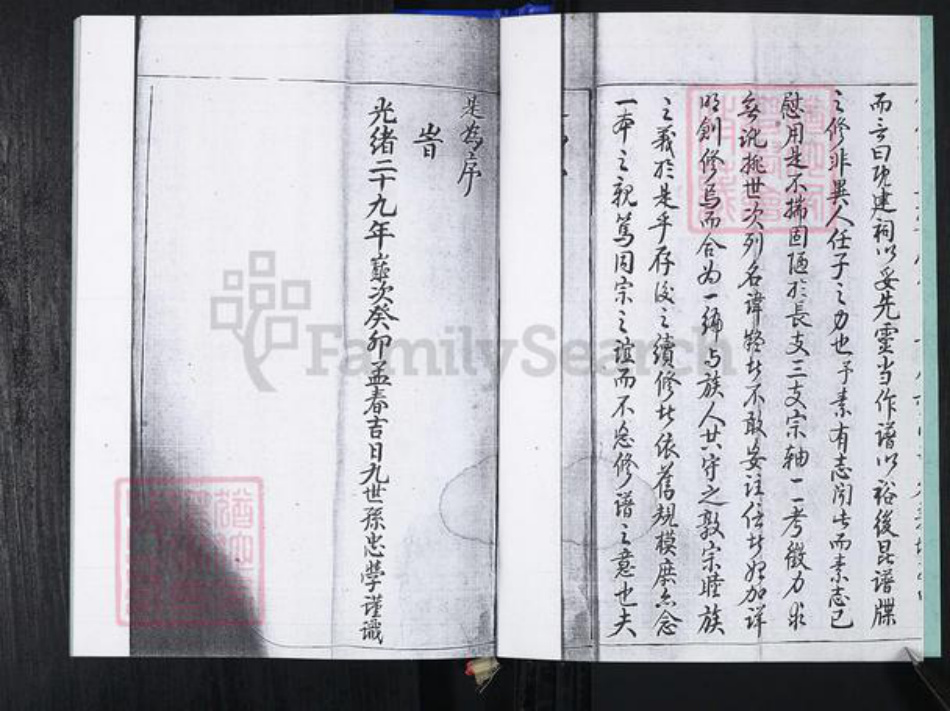 而言曰既建祠以妥先靈当作譜以裕後昆譜牒
之修非異人任子之力也予素有志聞此而素志已
慰用是不揣固陋於長支三支宗軸一一考徵力求
無訛挑世次列名諱疑者不敢妄註信者如加詳
明創修焉而合為一編与族人共守之敦宗睦族
之義於是乎存後之續修者依舊規模庶亦念
一本之親篤同宗之誼而不怠修譜之意也夫
是為序
旹
光绪二十九年嵗次癸卯孟春吉日九世孫忠學谨識
FamilySearch